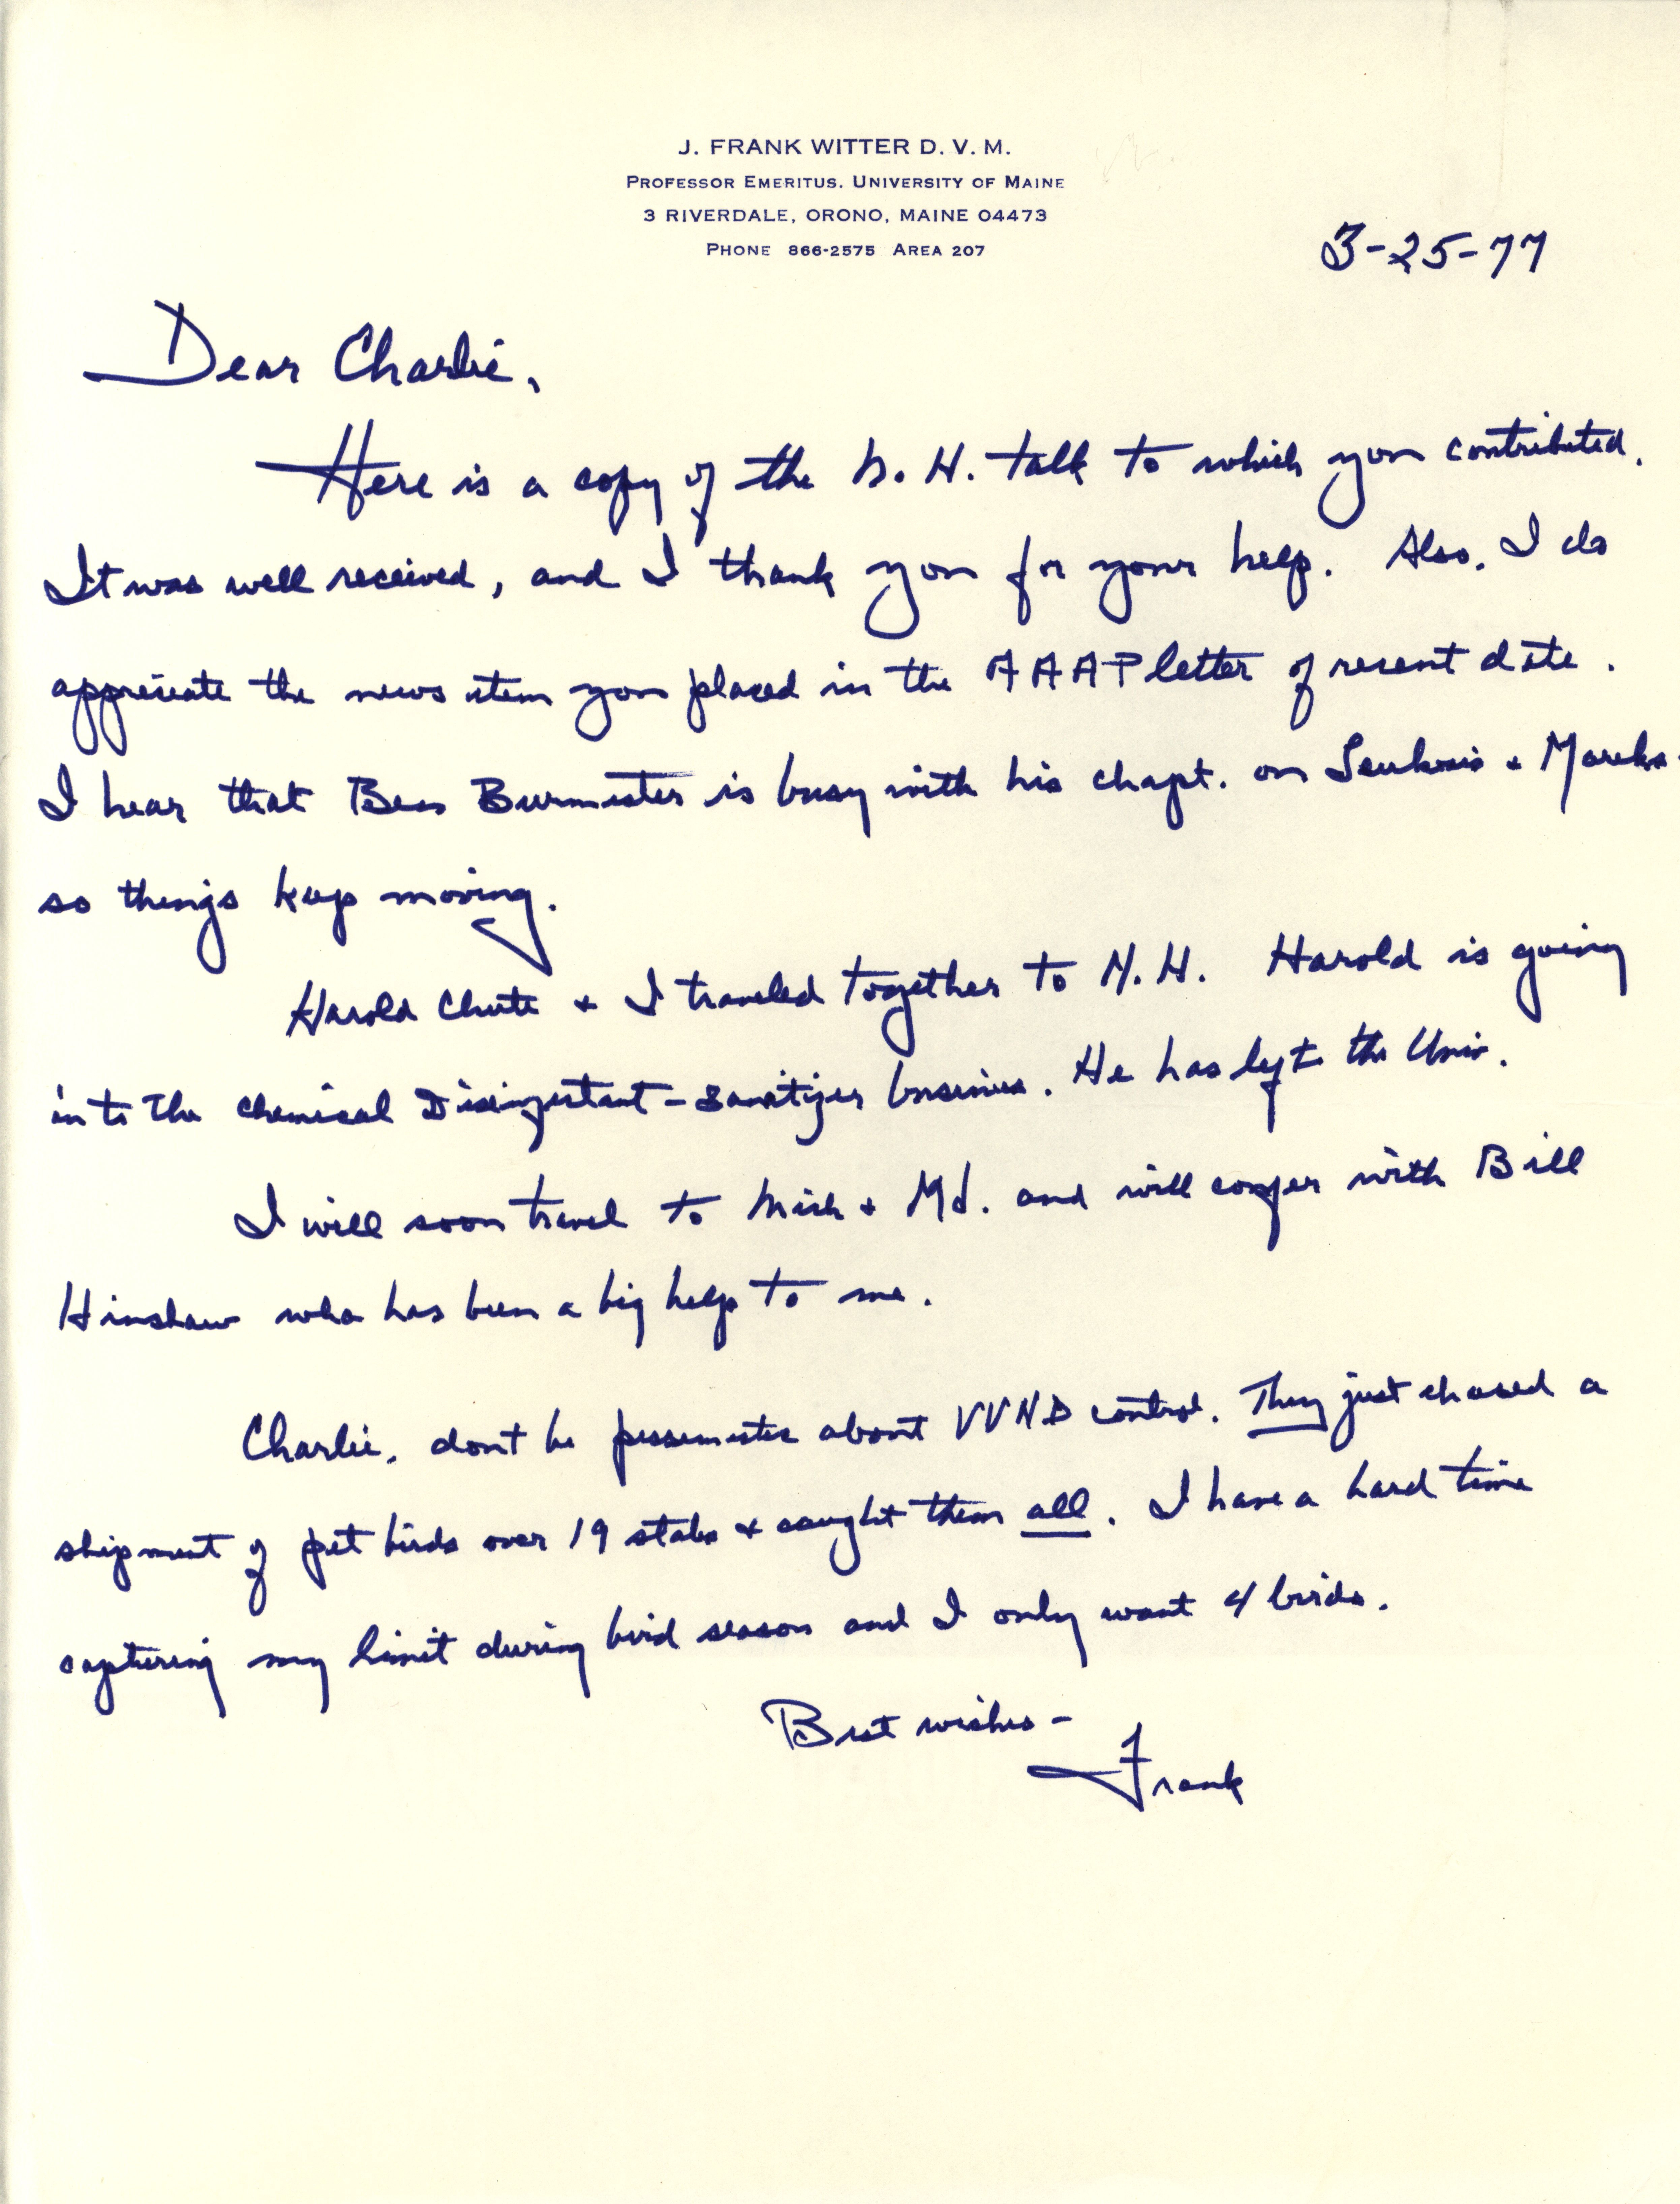 J. FRANK WITTER D. V. M.
PROFESSOR EMERITUS. UNIVERSITY OF MAINE
3 RIVERDALE, ORONO, MAINE 04473
PHONE 866-2575 AREA 207
3-25-77
Dear Charlie,
Here is a copy of the N. H. talk to which you contributed.
It was well received, and I thank you for your help. Also, I do
appreciate the news item you placed in the AAAP letter of recent date.
I hear that Burmester is busy with his chapt. on Leukosis + Mareks
so things keep moving.
Harold Chute + I traveled together to N. H. Harold is going
into the chemical Disinfectant-Sanitizer business. He has left the Univ.
I will soon travel to Mich + Md. and will confer with Bill
Hinshaw who has been a big help to me.
Charlie, dont be about VVND control. They just chased a
shipment of pet birds over 19 states + caught them all. I have a hard time
capturing my limit during bird season and I only want 4 birds.
Best wishes -
Frank